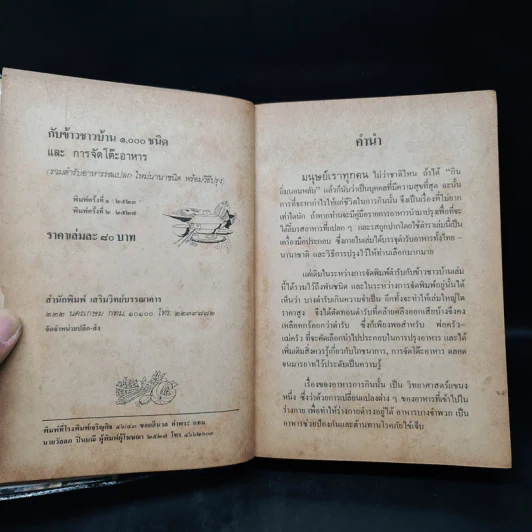 กับข้าวชาวบ้าน ๑,๐๐๐ ชนิด
และ การจัดโต๊ะอาหาร
(รวมตำรับอาหารรสแปลก ใหม่นานาชนิด พร้อมวิธีปรุง)
พิมพ์ครั้งที่ ๑ : ๒๕๒๓
พิมพ์ครั้งที่ ๒ : ๒๕๒๘
ราคาเล่มละ ๘๐ บาท
สำนักพิมพ์ เสริมวิทย์บรรณาคาร
๒๒๒ นครเกษม กทม. ๑๐๑๐๐ โทร. ๒๒๓๙๘๘๒
จัดจำหน่ายปลีก-ส่ง
พิมพ์ที่โรงพิมพ์เจริญกิจ ซอยสีนวล ท่าพระ กทม.
นายวัลลภ ปิ่นมณี ผู้พิมพ์ผู้โฆษณา
คำนำ
มนุษย์เราทุกคน ไม่ว่าชาติไหน ถ้าได้ “กิน
อิ่มนอนหลับ” แล้วก็นับว่าเป็นบุคคลที่มีความสุขที่สุด ฉะนั้น
การที่จะหากำไรให้แก่ชีวิตในการกินนั้น จึงเป็นเรื่องที่ไม่ยาก
เท่าใดนัก ถ้าหากท่านจะมีคู่มือรายการอาหารนำมาปรุงเพื่อที่จะ
ได้ลิ้มรสอาหารที่แปลก ๆ และรสถูกปากโดยใช้ตำราเล่มนี้เป็น
เครื่องมือประกอบ ซึ่งภายในเล่มได้บรรจุตำรับอาหารทั้งไทย -
นานาชาติ และวิธีการปรุงไว้ให้ท่านเลือกมากมาย
แต่เดิมในระหว่างการจัดพิมพ์ตำรับกับข้าวชาวบ้านเล่ม
นี้ได้รวมไว้ถึงพันชนิด และในระหว่างการจัดพิมพ์อยู่นั้นได้
เห็นว่า บางตำรับเกินความจำเป็น อีกทั้งจะทำให้เล่มใหญ่โต
ราคาสูง จึงได้ตัดทอนตำรับที่คล้ายคลึงออกเสียบ้างจึงคง
เหลือหกร้อยกว่าตำรับ ซึ่งก็เพียงพอสำหรับ พ่อครัว-
แม่ครัว ที่จะคัดเลือกนำไปประกอบในการปรุงอาหาร และได้
เพิ่มเติมสิ่งควรรู้เกี่ยวกับโภชนาการ, การจัดโต๊ะอาหาร ตลอด
จนมารยาทไว้ประดับเป็นความรู้
เรื่องของอาหารการกินนั้น เป็น วิทยาศาสตร์แขนง
หนึ่ง ซึ่งว่าด้วยการเปลี่ยนแปลงต่าง ๆ ของอาหารที่เข้าไปใน
ร่างกาย เพื่อทำให้ร่างกายดำรงอยู่ได้ อาหารบางจำพวก เป็น
อาหารช่วยป้องกันและต้านทานโรคภัยไข้เจ็บ